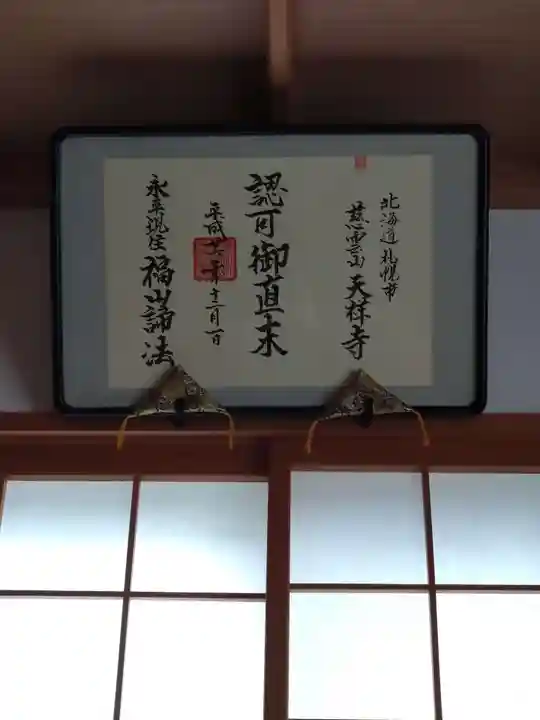 北海道札幌市
慈雲山天祥寺
認可御直末
平成廿六年十二月一日
永平現住福山諦法